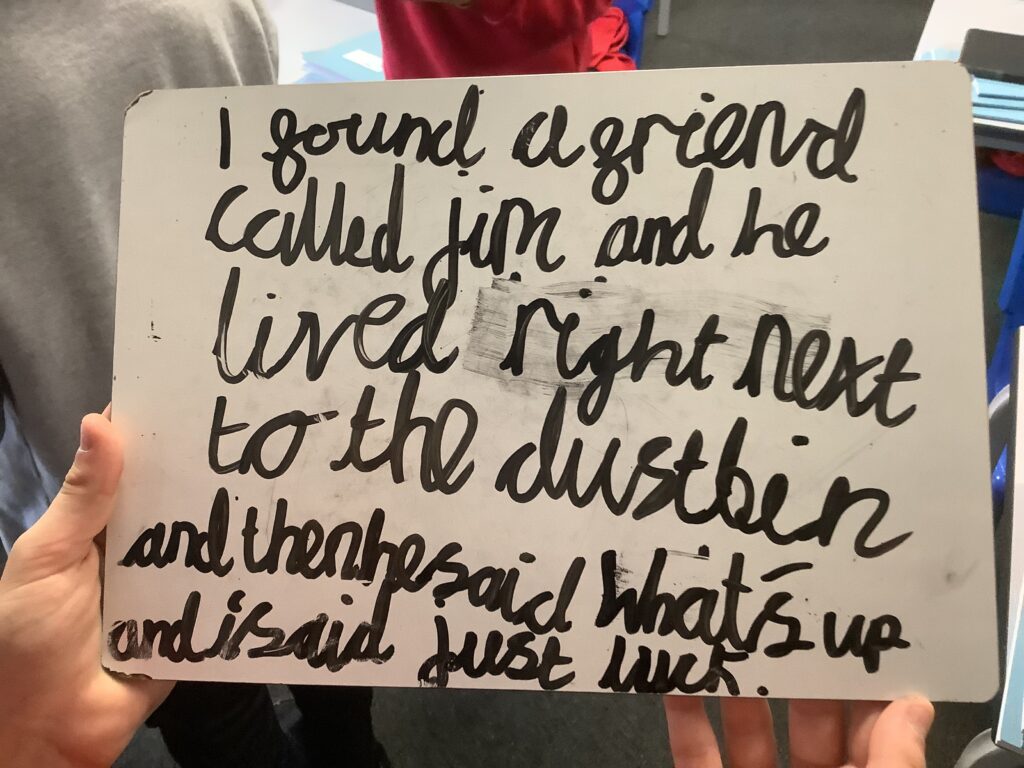 I found a friend
called jim and he
lived right next
to the dustbin
and then he said what's up
and i said just luck.